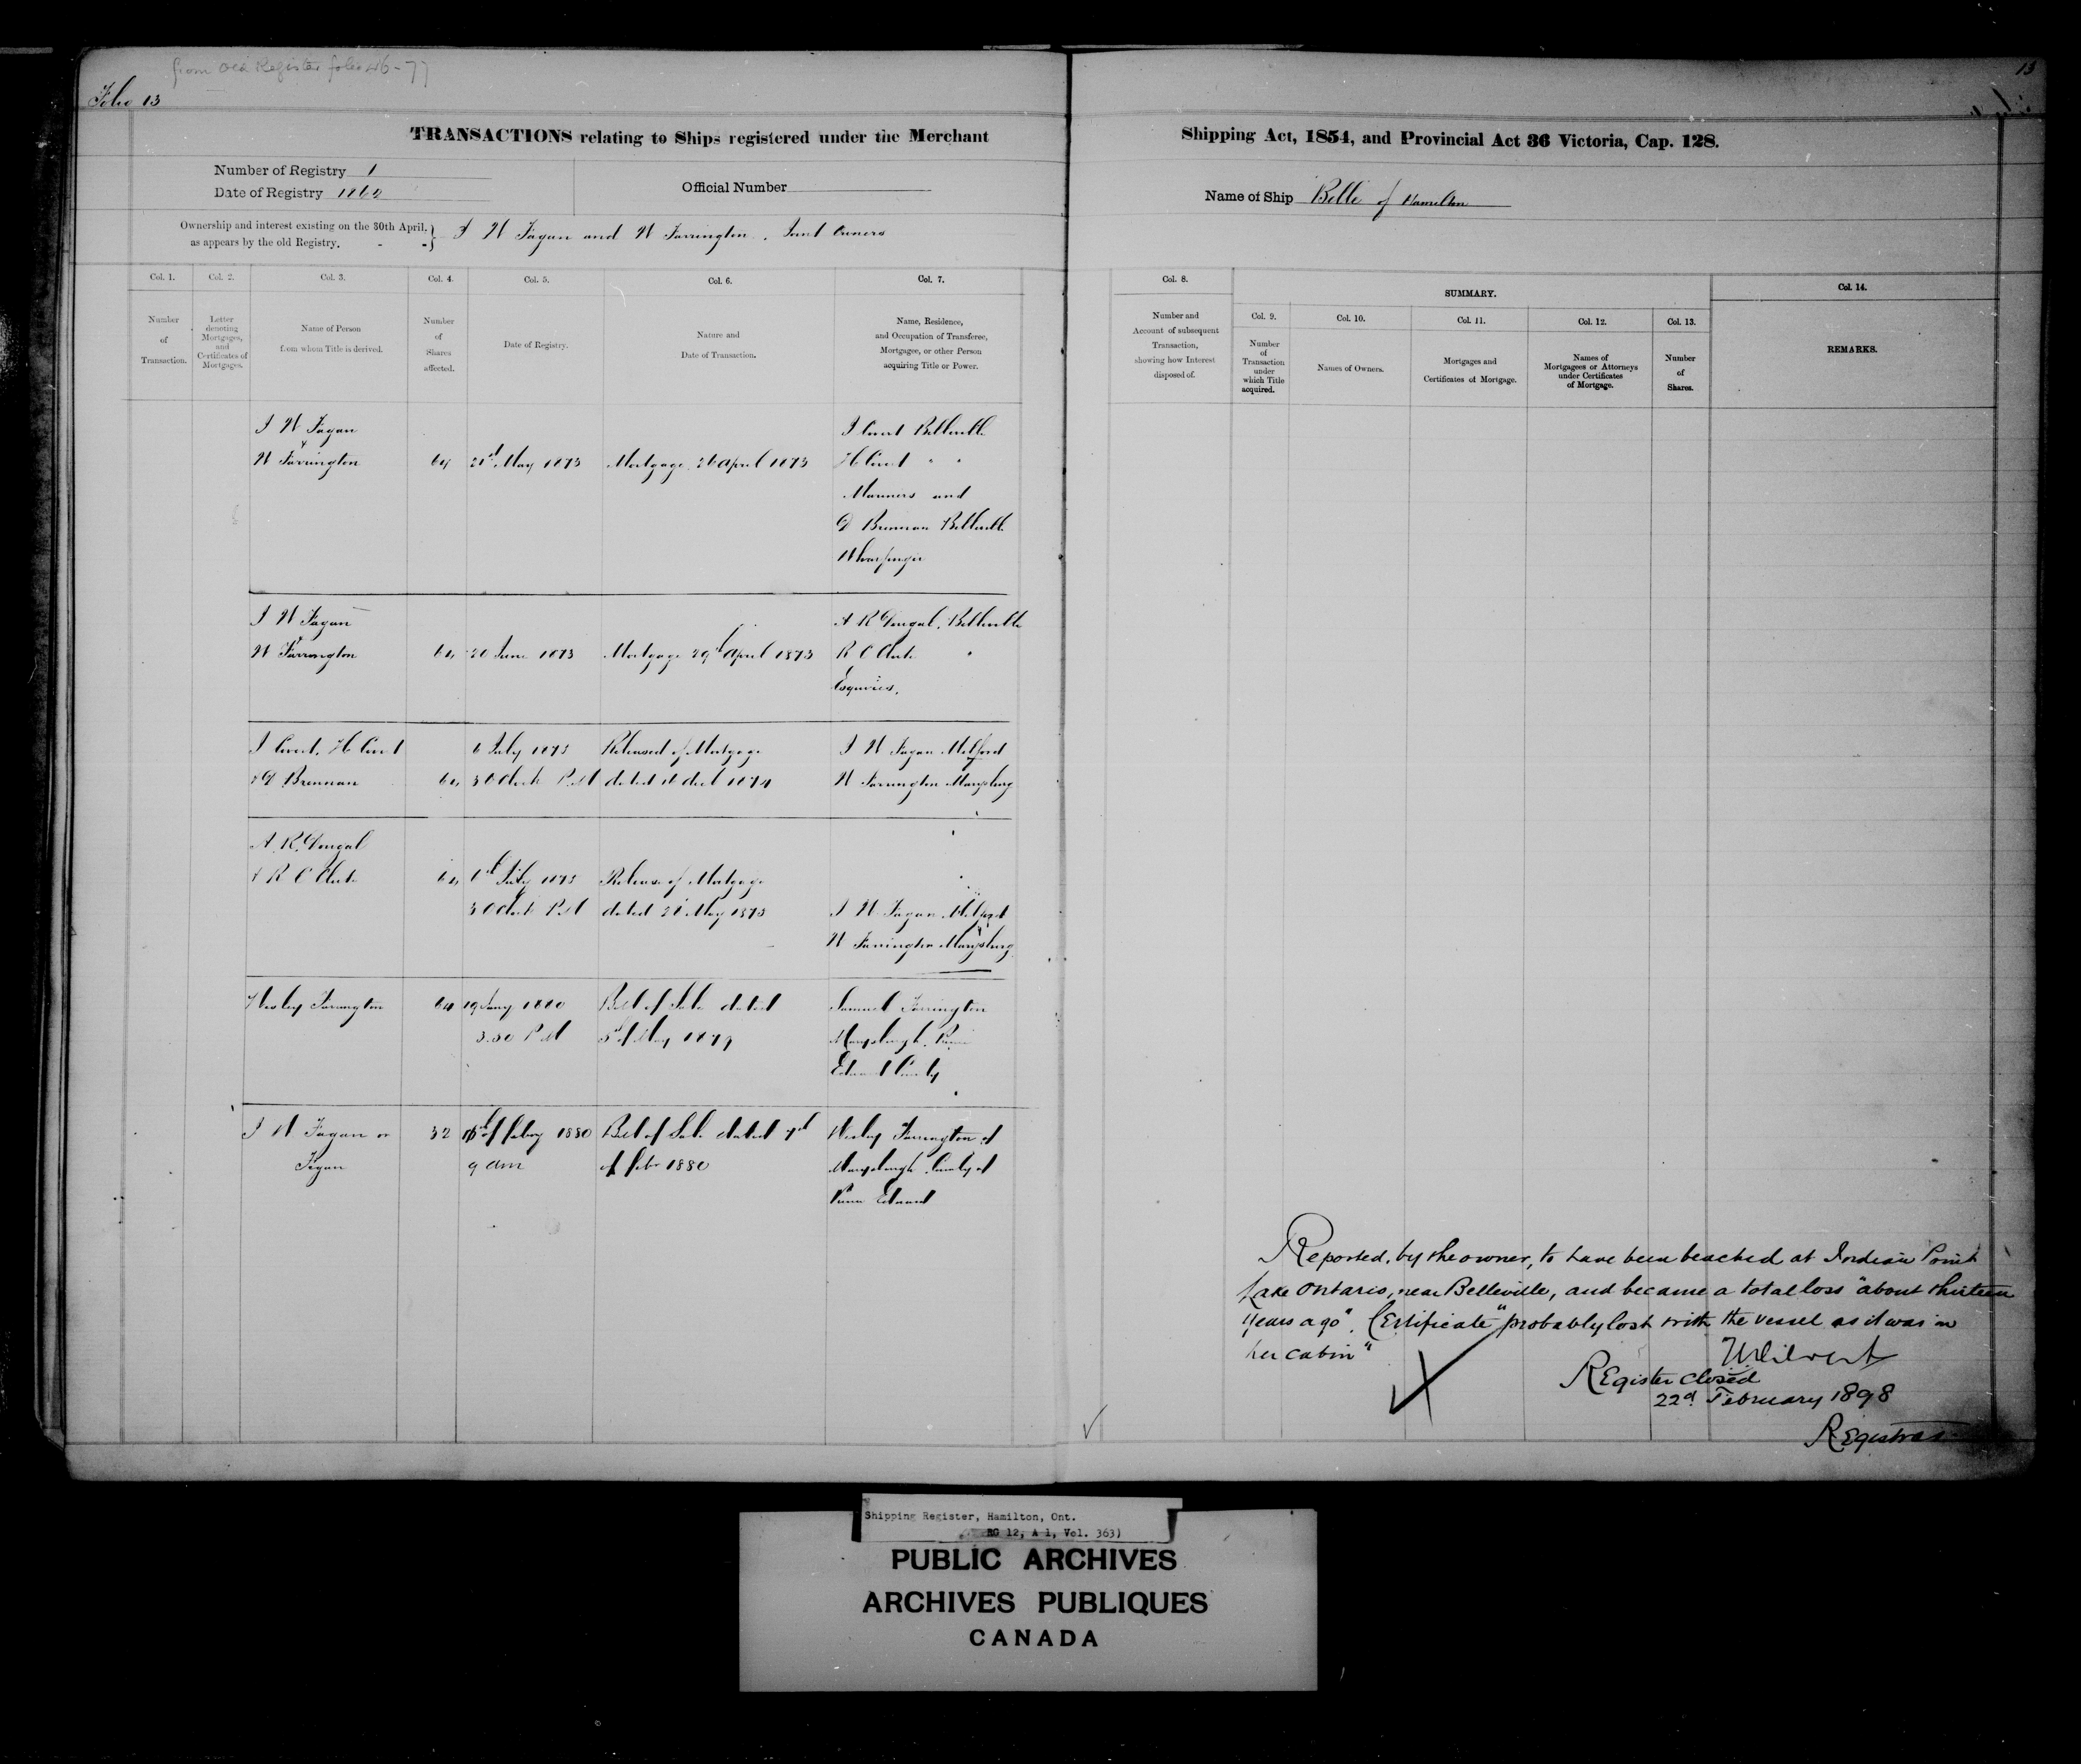 from Old Register folio 46-77
Folio 13
13
TRANSACTIONS relating to Ships registered under the Merchant Shipping Act, 1854, and Provincial Act 36 Victoria, Cap. 128.
Number of Registry 1
Date of Registry
Official Number
Name of Ship Belle of Hamilton
Ownership and interest existing on the 30th April,
as appears by the old Registry.
J W Fagan and W Farrington, Joint Owners
Col. 1.
Number
of
Transaction.
Col. 2.
Letter
denoting
Mortgages,
and
Certificates of
Mortgages.
Col. 3.
Name of Person
from whom Title is derived.
Col. 4.
Number
of
Shares
affected.
Col. 5.
Date of Registry.
Col. 6.
Nature and
Date of Transaction.
Col. 7.
Name, Residence,
and Occupation of Transferee,
Mortgagee, or other Person
acquiring Title or Power.
Col. 8.
Number and
Account of subsequent
Transaction,
showing how Interest
disposed of.
SUMMARY.
Col. 9.
Number
of
Transaction
under
which Title
acquired.
Col. 10.
Names of Owners.
Col. 11.
Mortgages and
Certificates of Mortgage.
Col. 12.
Names of
Mortgagees or Attorneys
under Certificates
of Mortgage.
Col. 13.
Number
of
Shares.
Col. 14.
REMARKS.
J W Fagan
&
W Farrington 64 21st May 1873 Mortgage 26 April 1873
Belleville
" "
Mariners and
D Brennan Belleville
Wharfinger
J W Fagan
&
W Farrington 64 20 June 1873 Mortgage 29th April 1873
A R Dougal, Belleville
R C Clute "
Esquires.
& D Brennan 64 3 OClock P.M
6 July 1875 Released of Mortgage
dated 16 Decl 1874
J W Fagan Milford
W Farrington Marysburg
A. R. Dougal
& R C Clute 64 July 1875 Release of Mortgage
3 OClock P.M dated May 1875
J W Fagan Milford
W Farrington Marysburg
Wesley Farrington 64 19 Jany 1880 Bill of Sale dated
3.30 P M 5th of May 1879
Samuel Farrington
Marysburgh. Prince
Edward County
J W Fagan or 32 of Febry 1880 Bill of Sale dated
Fegan 9 am of Febr 1880
Wesley Farrington of
Marysburgh County of
Prince Edward
Reported, by the owner, to have been beached at Indian Point
Lake Ontario, near Belleville, and became a total loss "about thirteen
years ago". Certificate "probably lost with the vessel as it was in
her cabin"
Register closed
22d February 1898
Registrar
Shipping Register, Hamilton, Ont.
RG 12, A 1, Vol. 363)
PUBLIC ARCHIVES
ARCHIVES PUBLIQUES
CANADA